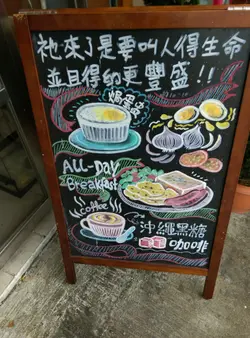 祂來了是要叫人得生命
並且得的更豐盛!!
焗蛋盅
ALL-DAY
Breakfast
coffee
沖繩黑糖
咖啡